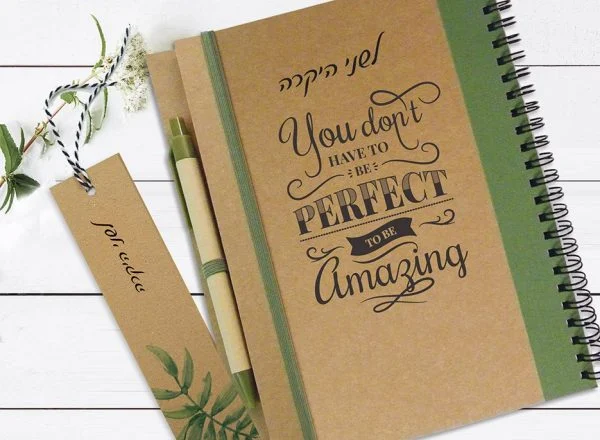 לשני היקרה
You don't
HAVE TO
BE
PERFECT
TO BE
Amazing